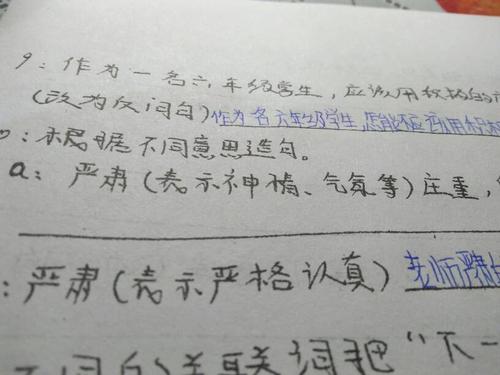 9：作为一名六年级学生，应该用积极的
（改为反问句）作为名六年级学生，怎能不应该用积极
：根据不同意思造句。
a：严肃（表示神情、气氛等）庄重，
：严肃（表示严格认真）老师严肃的
词句）关联词把“下一